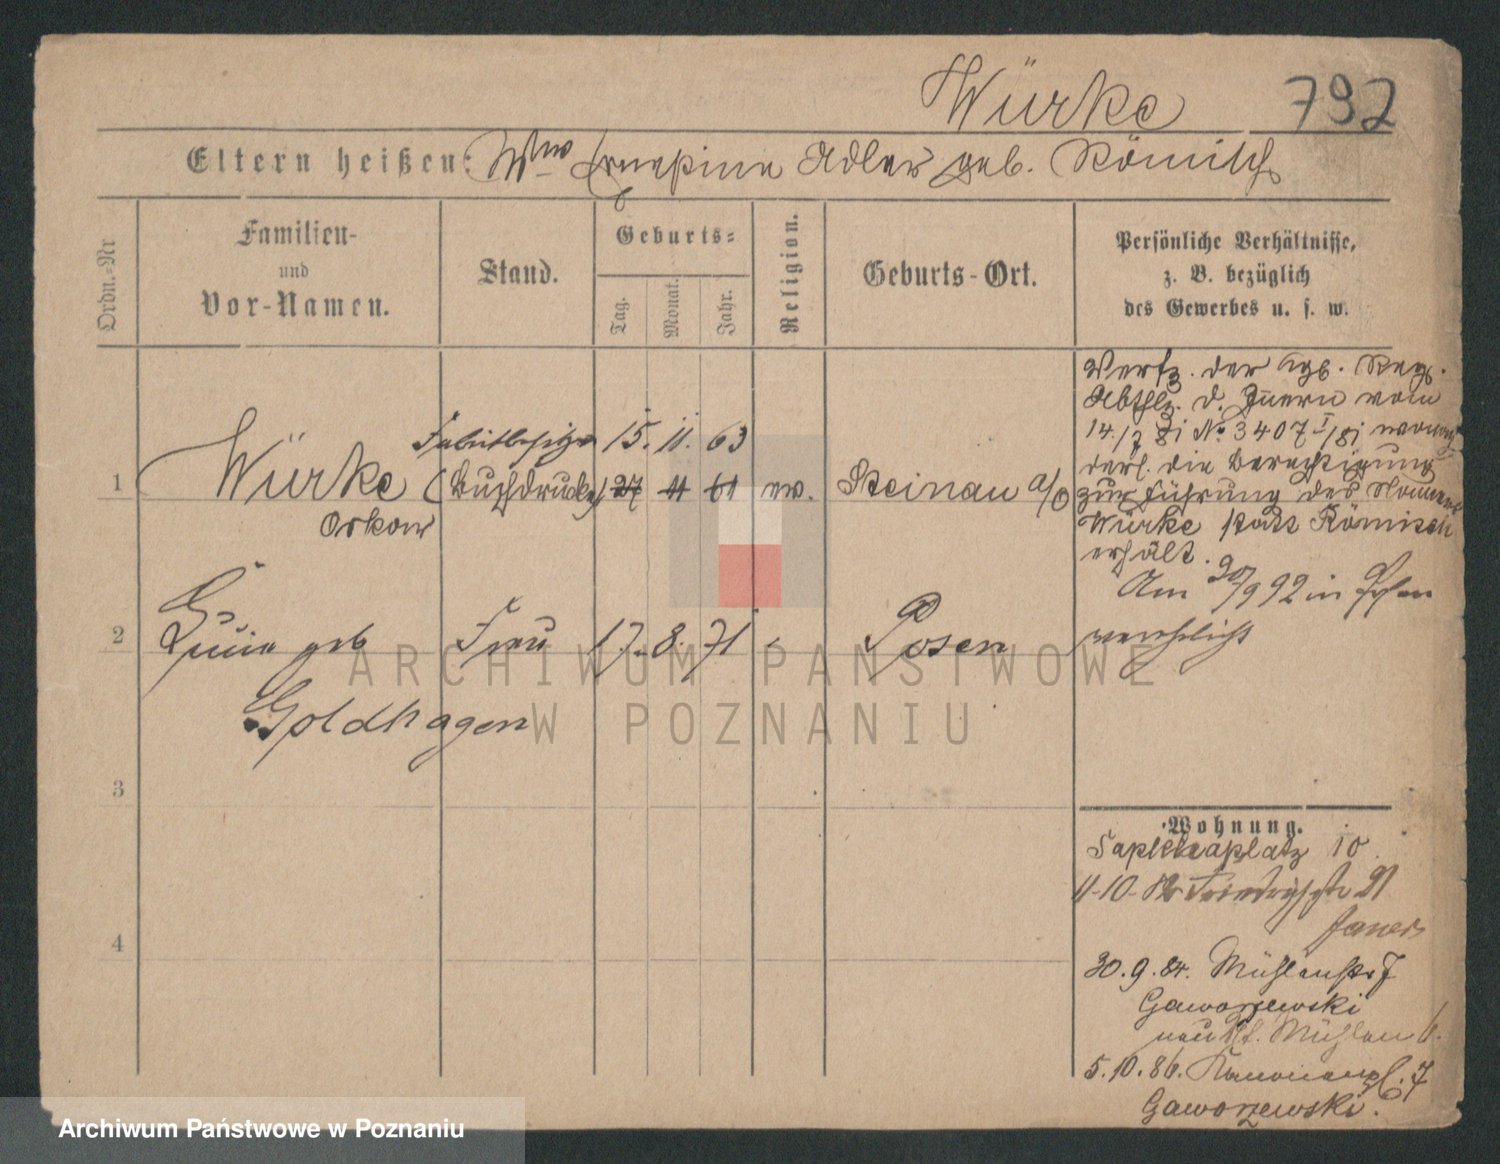 Würke 792
Eltern heißen: Wwe Adler geb. Römisch
Ordn.-Nr
Familien-
und
Vor-Namen.
Stand.
Geburts-
Tag.
Monat.
Jahr.
Religion.
Geburts-Ort.
Persönliche Verhältnisse,
z. B. bezüglich
des Gewerbes u. s. w.
1 Würke Fabrikbesitzer 15. 11. 63
Oskar (Buchdrucker) 27 11 61 ev. Steinau a/O
Verfg. der Kgl. Reg.
Abthlg. d. Innern vom
14./7 81 No 3407 I/81 wonach
ders. die Berechtigung
zur Führung des Namens
Würke statt Römisch
erhält.
Am 20/9 92 in Posen
verehelicht
2 Lucie geb Frau 17. 8. 71 Posen
Goldhagen
3
4
Wohnung.
Sapiehaplatz 10
4-10-82 Friedrichstr 21
30.9.84. Mühlenstr 7
Gaworzewski
neu Mühlen 6.
5.10.86. Kanonenpl. 7
Gaworzewski.
ARCHIWUM PAŃSTWOWE
W POZNANIU
Archiwum Państwowe w Poznaniu